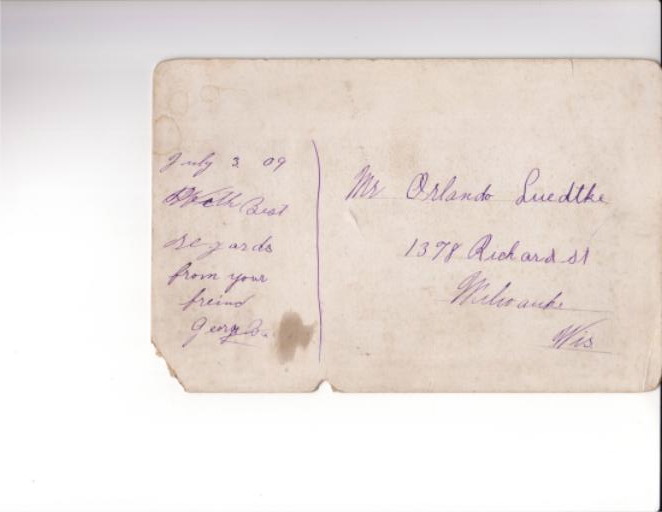 July 3 09
With Best
regards
from your
freind
Mr Orlando Luedtke
1378 Richard St
Milwauke
Wis